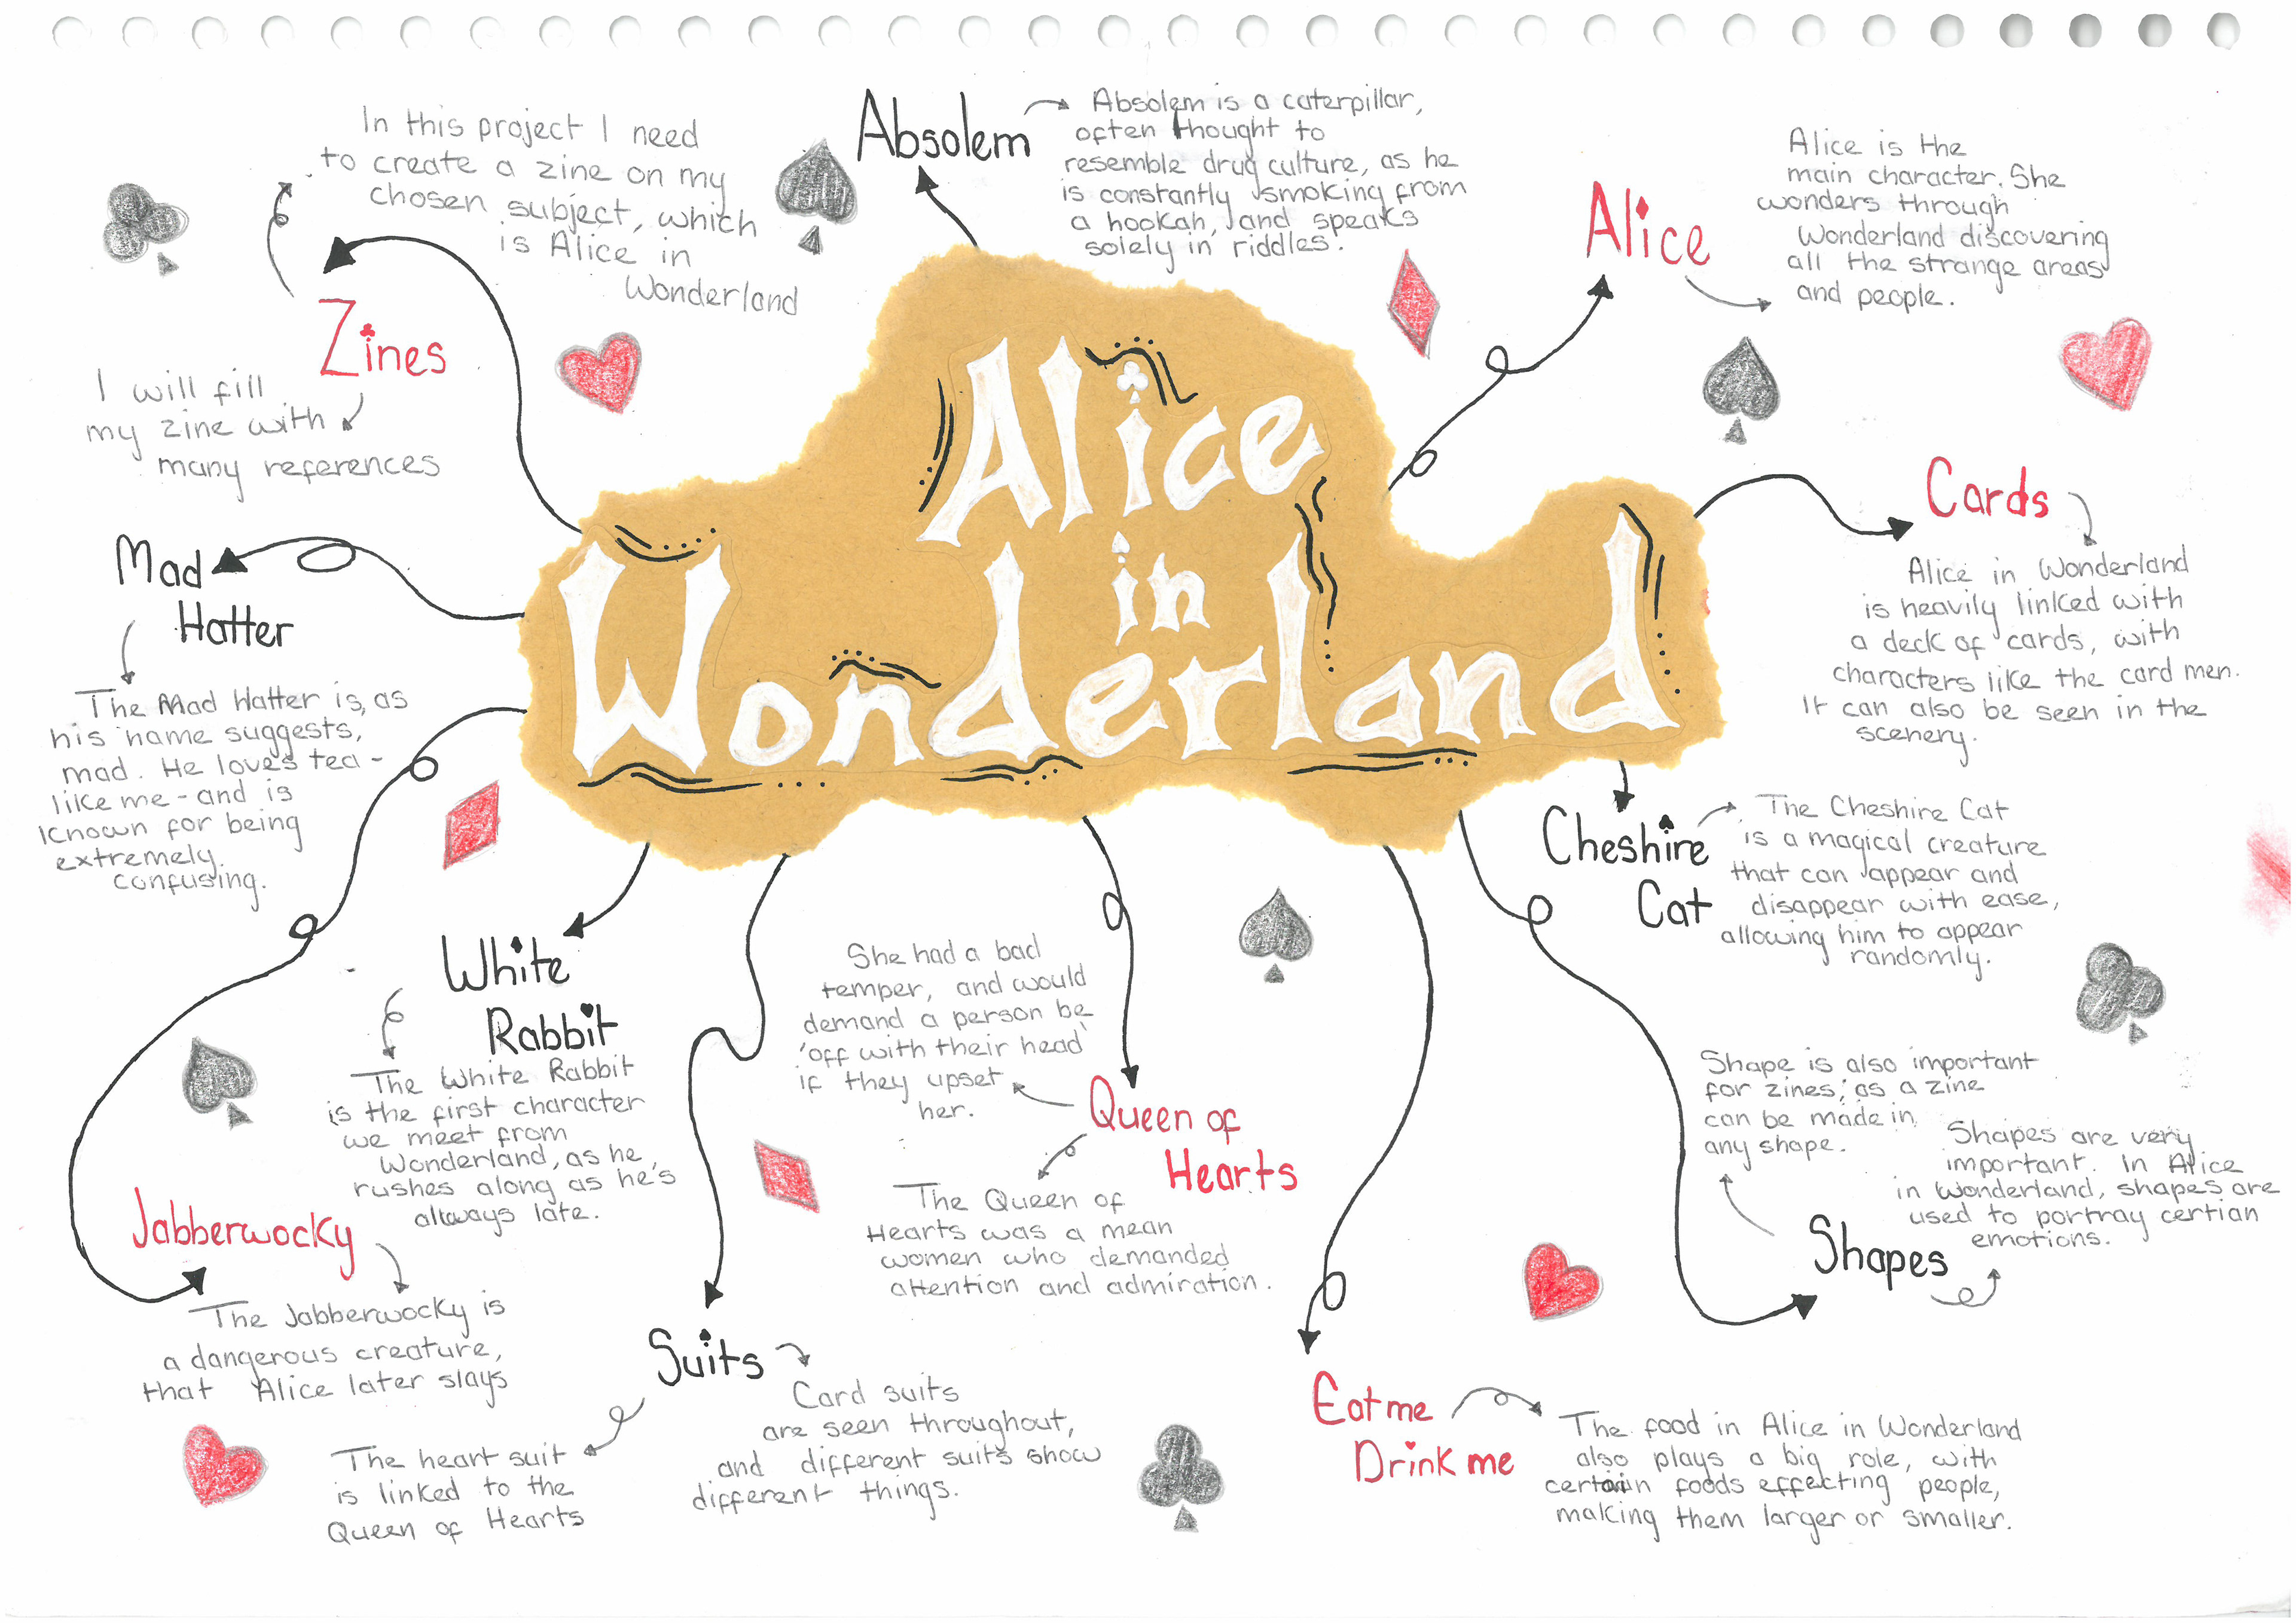 Alice
in
Wonderland
Absolem
Absolem is a caterpillar,
often thought to
resemble drug culture, as he
is constantly smoking from
a hookah, and speaks
solely in riddles.
Alice
Alice is the
main character. She
wonders through
Wonderland discovering
all the strange areas
and people.
Cards
Alice in Wonderland
is heavily linked with
a deck of cards, with
characters like the card men.
It can also be seen in the
scenery.
Cheshire
Cat
The Cheshire Cat
is a magical creature
that can appear and
disappear with ease,
allowing him to appear
randomly.
Shapes
Shape is also important
for zines, as a zine
can be made in
any shape.
Shapes are very
important. In Alice
in Wonderland, shapes are
used to portray certian
emotions.
Eat me
Drink me
The food in Alice in Wonderland
also plays a big role, with
certain foods effecting people,
making them larger or smaller.
Queen of
Hearts
She had a bad
temper, and would
demand a person be
'off with their head'
if they upset
her.
The Queen of
Hearts was a mean
women who demanded
attention and admiration.
Suits
Card suits
are seen throughout,
and different suits show
different things.
The heart suit
is linked to the
Queen of Hearts
White
Rabbit
The White Rabbit
is the first character
we meet from
Wonderland, as he
rushes along as he's
always late.
Jabberwocky
The Jabberwocky is
a dangerous creature,
that Alice later slays
Mad
Hatter
The Mad Hatter is, as
his name suggests,
mad. He loves tea -
like me - and is
known for being
extremely
confusing.
Zines
In this project I need
to create a zine on my
chosen subject, which
is Alice in
Wonderland
I will fill
my zine with
many references